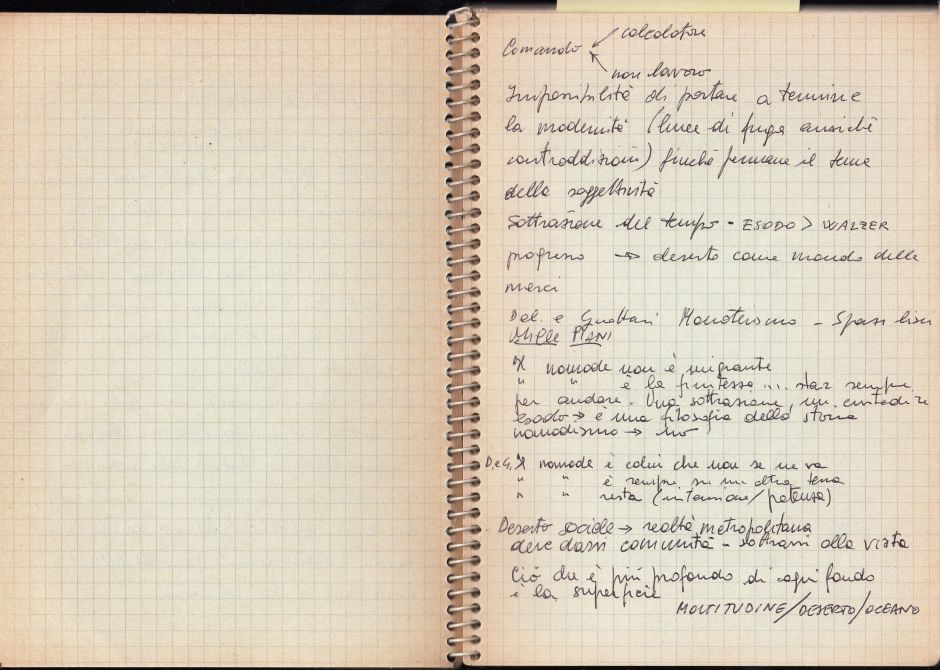 Comando
calcolatore
non lavoro
Impossibilità di portare a termine
la modernità (linee di fuga anziché
contraddizioni) finché permane il tema
della soggettività
Sottrazione del tempo - ESODO > WALZER
progresso → deserto come mondo delle
merci
Del. e Guattari Monoteismo - Spazi lisci
Mille PIANI
Il nomade non è migrante
" " è la finitezza ... star sempre
per andare. Una sottrazione, un custodire
esodo → è una filosofia della storia
nomadismo → no
D. e G. Il nomade è colui che non se ne va
" " è sempre su un'altra terra
" " resta (intensione/potenza)
Deserto sociale → realtà metropolitana
deve darsi comunità - sottrarsi alla vista
Ciò che è più profondo di ogni fondo
è la superficie
MOLTITUDINE/DESERTO/OCEANO